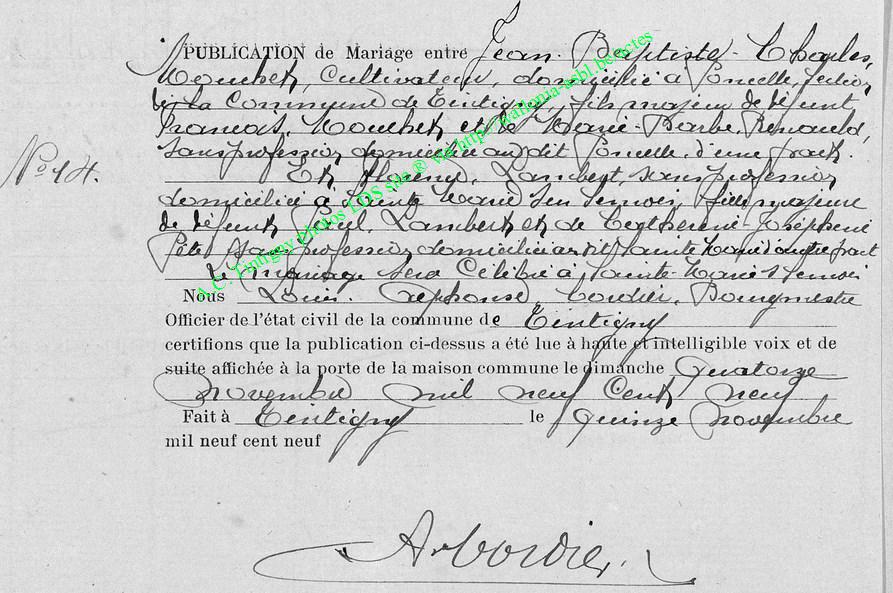 PUBLICATION de Mariage entre Jean Baptiste Charles
Mouchet, Cultivateur, domicilié à Poncelle, section
de la Commune de Tintigny, fils majeur de défunt
François Mouchet et de Marie-Barbe Renauld,
sans profession domiciliée au dit Poncelle, d'une part.
N° 14.
Et Florence Lambert, sans profession
domiciliée à Sainte Marie sur Semois, fille majeure
de défunt Lambert et de Catherine-Joséphine
sans profession domiciliée au dit Sainte Marie d'autre part
Le mariage sera Célébré à Sainte-Marie s Semois
Nous Louis Alphonse Cordier, Bourgmestre
Officier de l'état civil de la commune de Tintigny
certifions que la publication ci-dessus a été lue à haute et intelligible voix et de
suite affichée à la porte de la maison commune le dimanche quatorze
novembre mil neuf cent neuf
Fait à Tintigny le quinze novembre
mil neuf cent neuf
A. Cordier
A.C. Tintigny photos LDS site ® via http://wallonia-asbl.be/actes